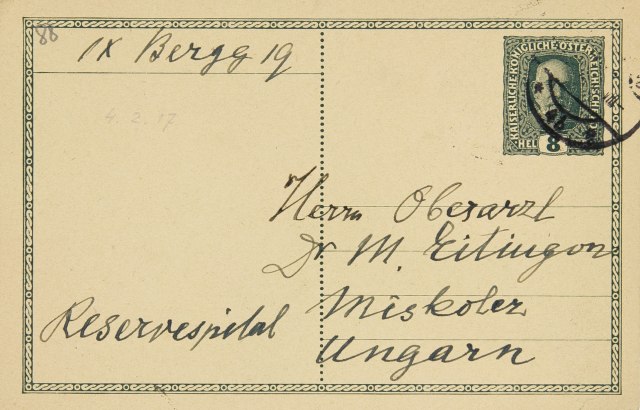 88
IX Bergg 19
4. 2. 17
KAISERLICHE·KÖNIGLICHE·ÖSTERREICHISCHE
HEL
8
Herrn Oberarzt
Dr M. Eitingon
Miskolcz
Reservespital
Ungarn